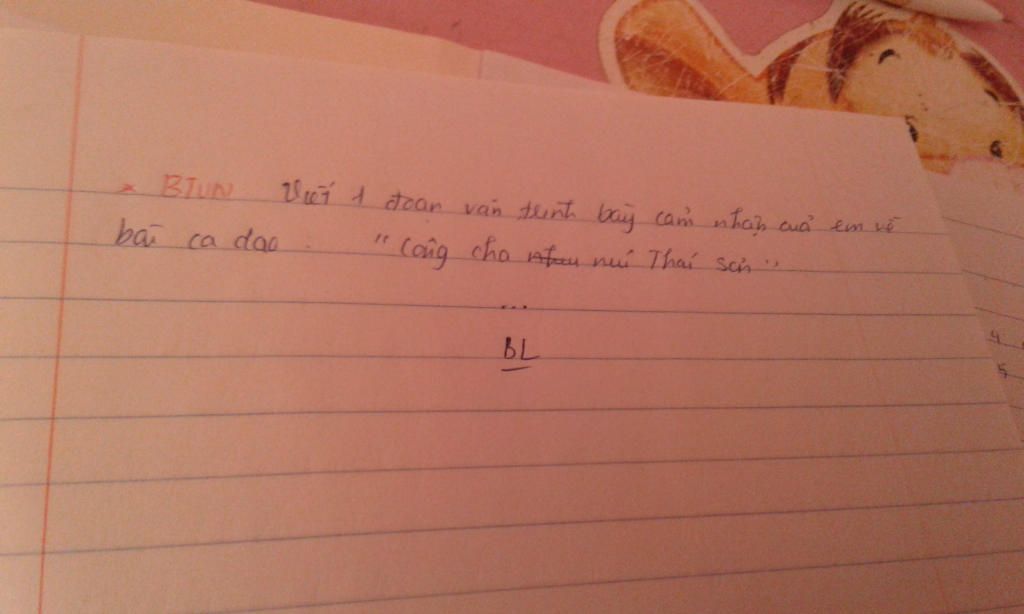 * BTVN Viết 1 đoạn văn trình bày cảm nhận của em về
bài ca dao. "Công cha như núi Thái Sơn"
...
BL
4
5